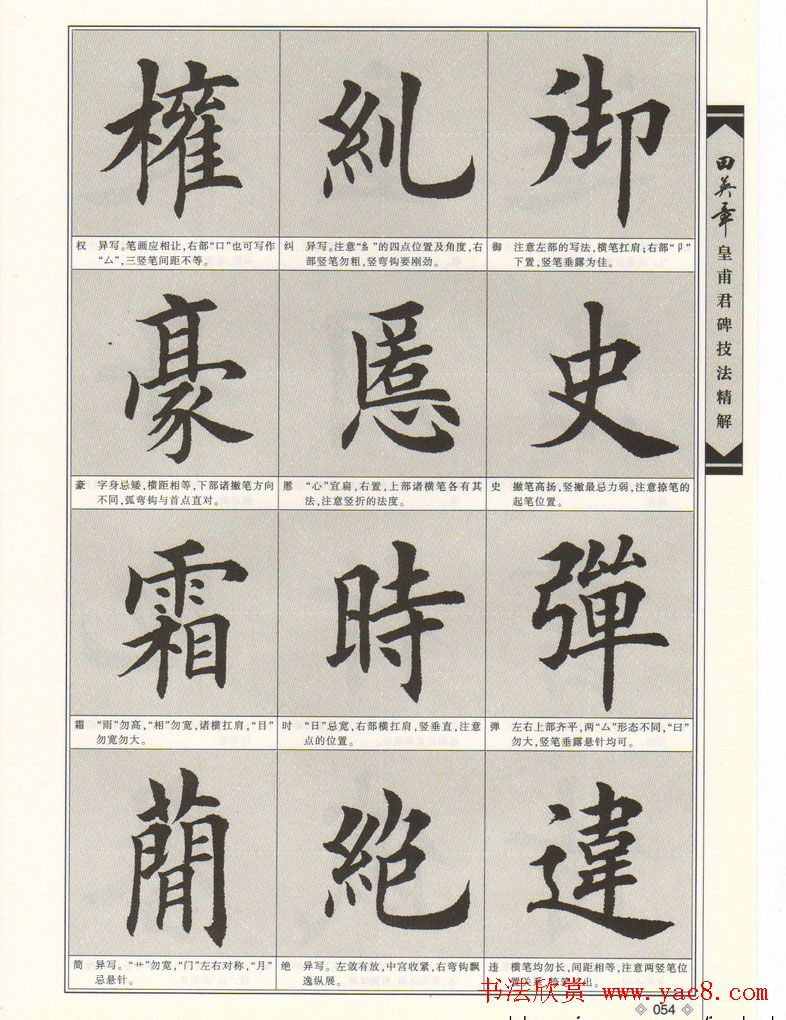 權 糺 御
权 异写。笔画应相让,右部“口”也可写作
“厶”,三竖笔间距不等。
纠 异写。注意“糹”的四点位置及角度,右
部竖笔勿粗,竖弯钩要刚劲。
御 注意左部的写法,横笔扛肩;右部“卩”
下置,竖笔垂露为佳。
豪 慝 史
豪 字身忌矮,横距相等,下部诸撇笔方向
不同,弧弯钩与首点直对。
慝 “心”宜扁,右置,上部诸横笔各有其
法,注意竖折的法度。
史 撇笔高扬,竖撇最忌力弱,注意捺笔的
起笔位置。
霜 時 彈
霜 “雨”勿高,“相”勿宽,诸横扛肩,“目”
勿宽勿大。
时 “日”忌宽,右部横扛肩,竖垂直,注意
点的位置。
弹 左右上部齐平,两“厶”形态不同,“曰”
勿大,竖笔垂露悬针均可。
蕳 絶 違
简 异写。“艹”勿宽,“门”左右对称,“月”
忌悬针。
绝 异写。左敛右放,中宫收紧,右弯钩飘
逸纵展。
违 横笔均勿长,间距相等,注意两竖笔位
田英章
皇甫君碑技法精解
书法欣赏 www.yac8.com
054